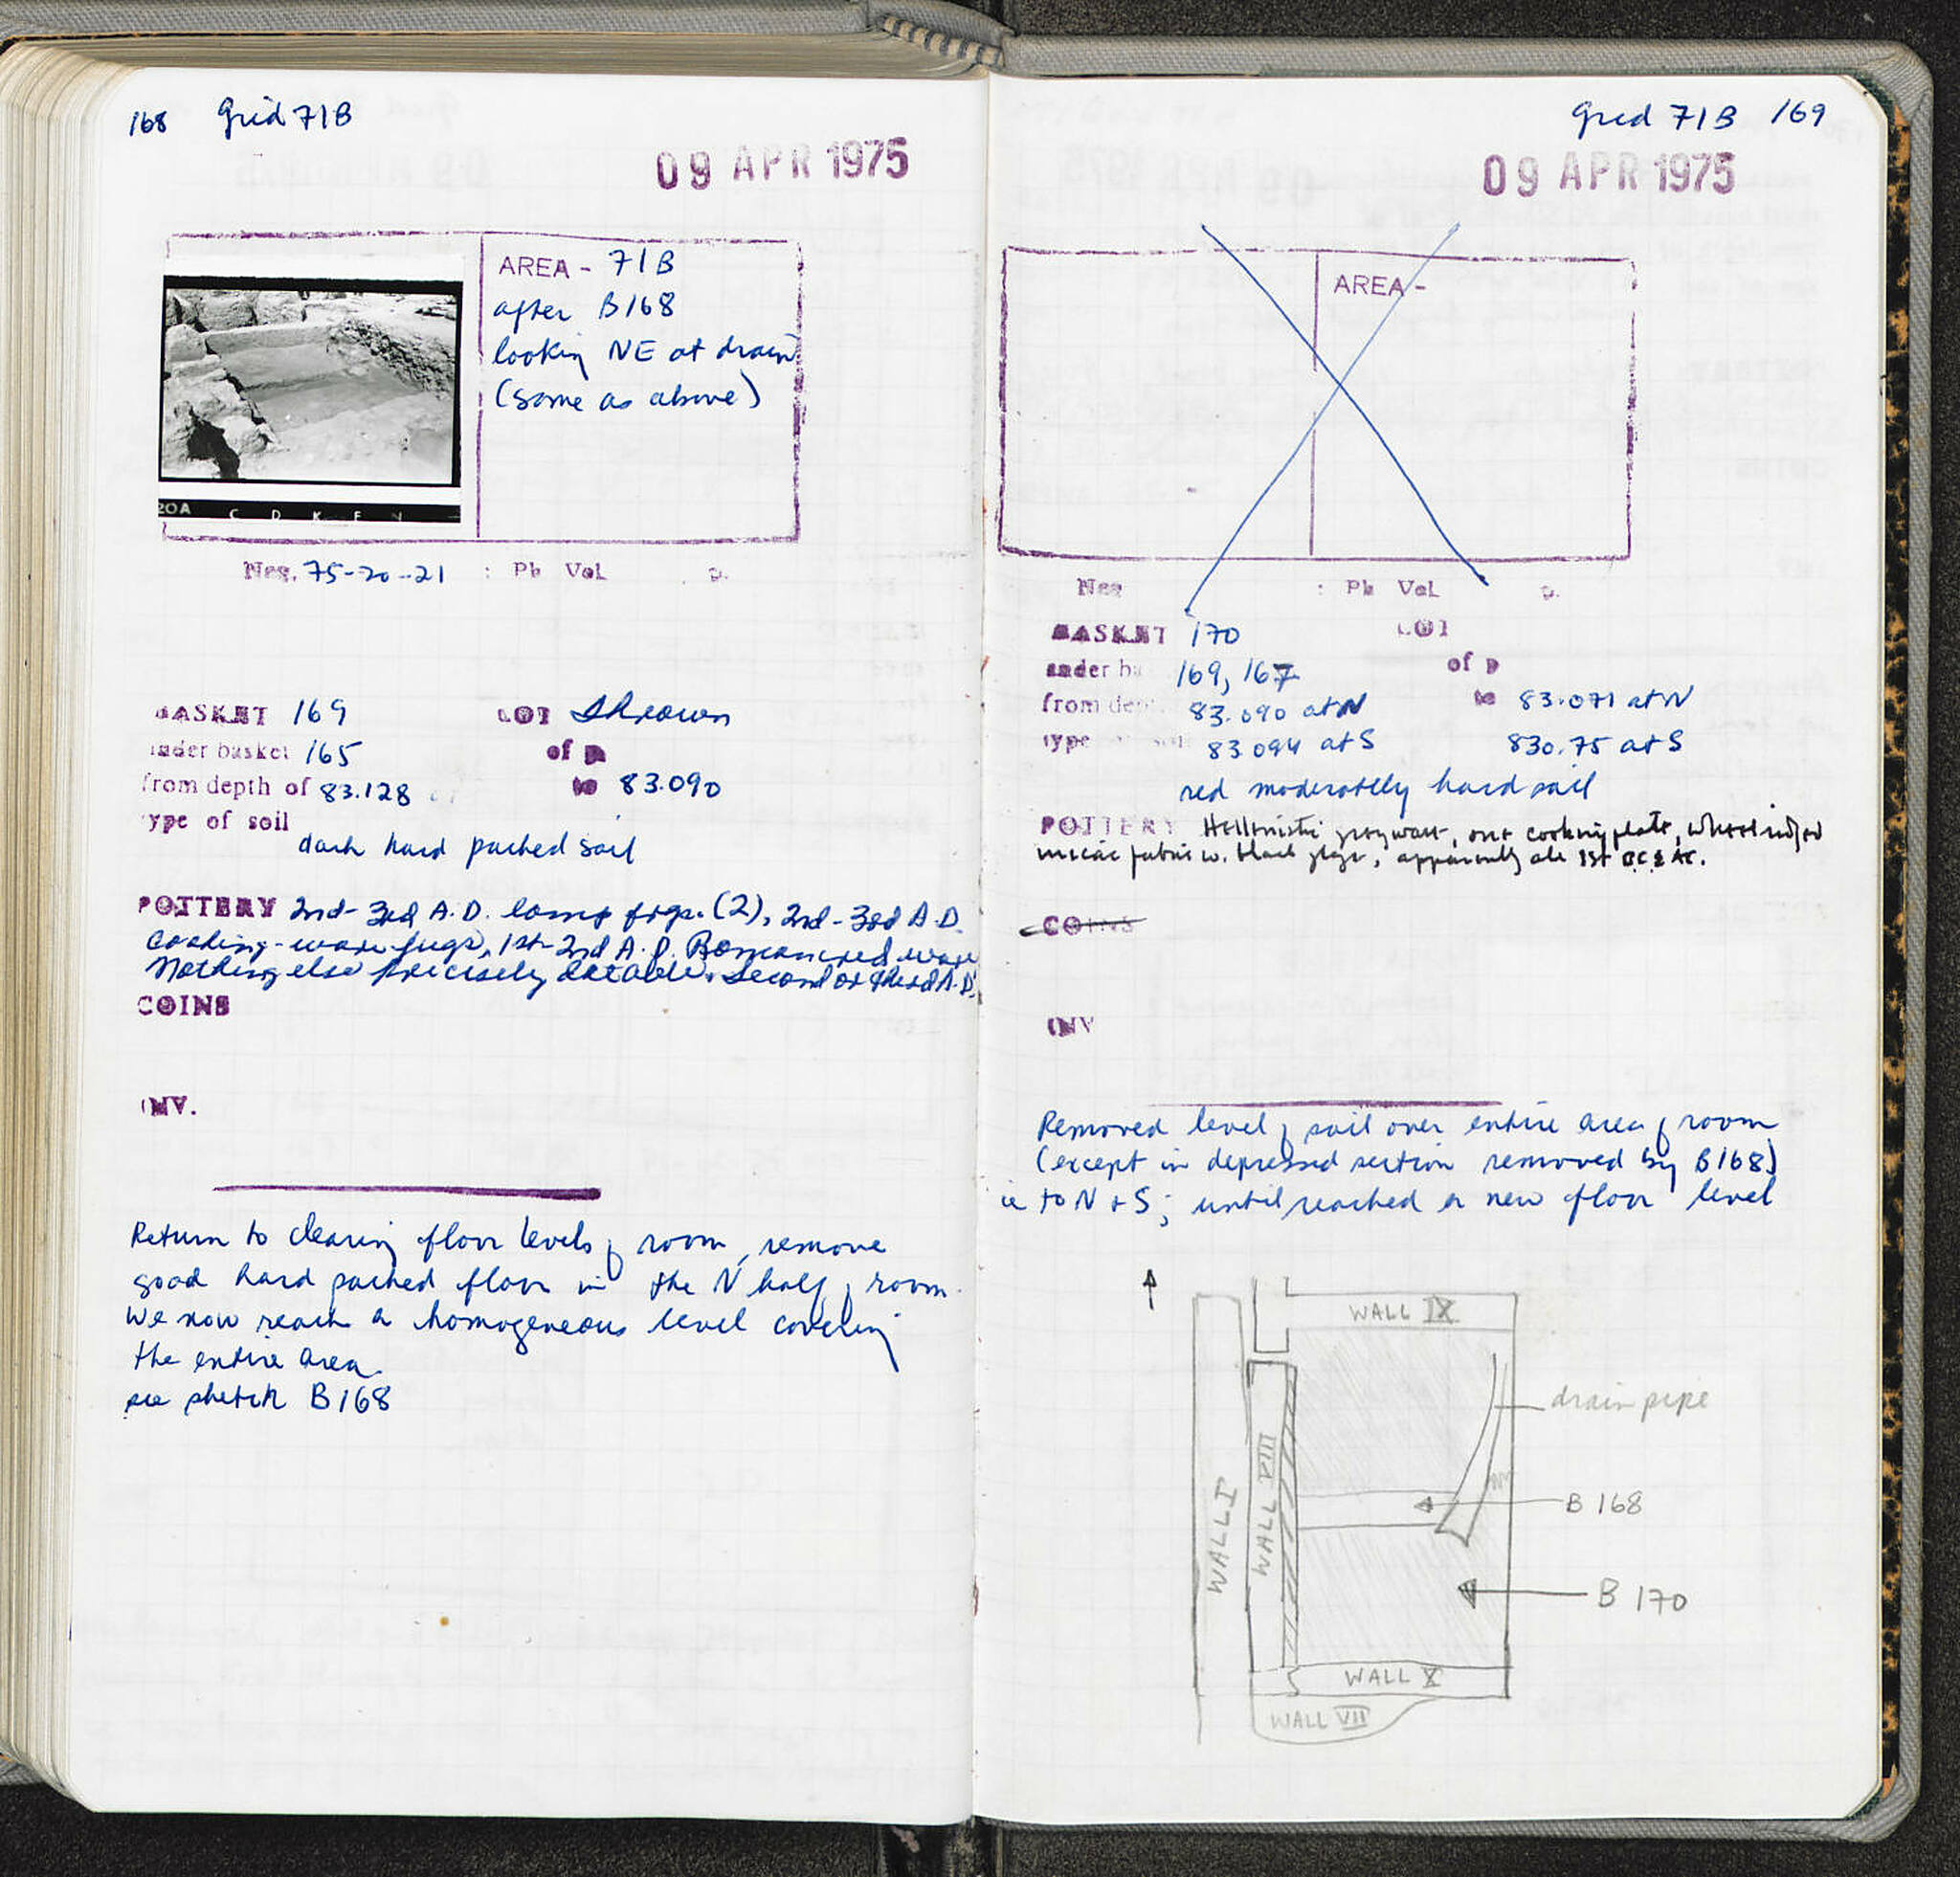 168 Grid 71B
09 APR 1975
AREA - 71B
after B168
looking NE at drain
(same as above)
20A
Neg. 75-20-21 : Ph Vol. p.
BASKET 169 LOT thrown
under basket 165 of p
from depth of 83.128 to 83.090
type of soil
dark hard packed soil
POTTERY 2nd-3rd A.D. lamp frgs. (2), 2nd-3rd A.D.
cooking-ware jugs, 1st-2nd A.D. Roman red ware
Nothing else precisely datable. Second or third A.D.
COINS
INV.
Return to clearing floor levels of room, remove
good hard packed floor in the N half of room.
We now reach a homogeneous level covering
the entire area
see sketch B168
Grid 71B 169
09 APR 1975
AREA -
Neg : Ph Vol. p.
BASKET 170 LOT
under ba 169, 167 of p
from dep 83.090 at N to 83.071 at N
type soi 83.094 at S 830.75 at S
red moderatlly hard soil
POTTERY Hellenistic grayware, one cooking plate, wheel ridged
micac fabric w. black glaze, apparently all 1st BC & AC.
COINS
INV
Removed level of soil over entire area of room
(except in depressed section removed by B168)
ie to N + S; until reached a new floor level
WALL IX
drain pipe
WALL I
WALL VIII
B 168
B 170
WALL X
WALL VII